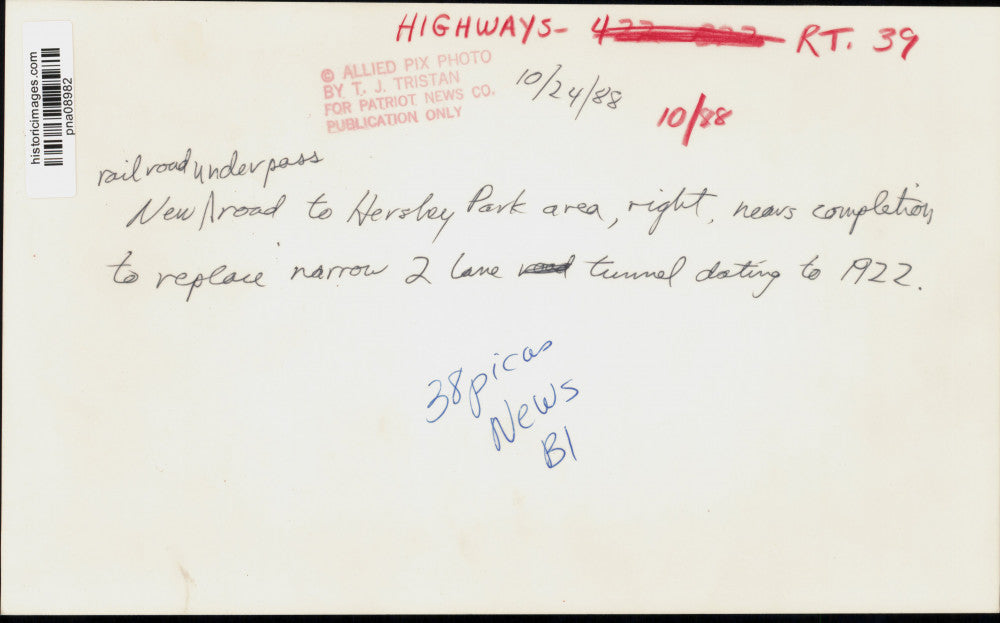 HIGHWAYS- 422 322 RT. 39
© ALLIED PIX PHOTO
BY T. J. TRISTAN
FOR PATRIOT NEWS CO.
PUBLICATION ONLY
10/24/88
10/88
historicimages.com
pna08982
railroad underpass
New road to Hershey Park area, right, nears completion
to replace narrow 2 lane road tunnel dating to 1922.
38 picas
News
B1